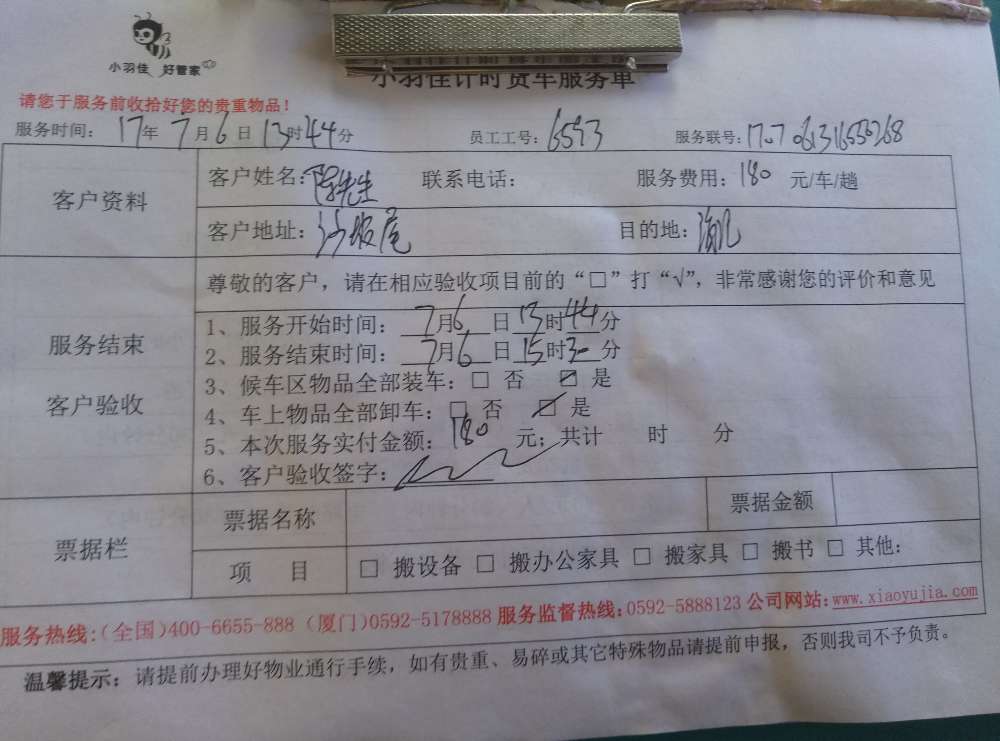 小羽佳 好管家
小羽佳计时货车服务单
请您于服务前收拾好您的贵重物品！
服务时间： 17年 7月 6日 13时 44分 员工工号：6593 服务联号：
客户资料
客户姓名：陈先生 联系电话： 服务费用：180 元/车/趟
客户地址：沙坡尾 目的地：
尊敬的客户，请在相应验收项目前的“□”打“√”，非常感谢您的评价和意见
服务结束
客户验收
1、服务开始时间： 7月 6 日 13时 44分
2、服务结束时间： 7月 6 日 15时 30分
3、候车区物品全部装车：□ 否 ☑ 是
4、车上物品全部卸车：□ 否 ☑ 是
5、本次服务实付金额： 180 元；共计 时 分
6、客户验收签字：
票据栏
票据名称 票据金额
项 目 □ 搬设备 □ 搬办公家具 □ 搬家具 □ 搬书 □ 其他：
服务热线:(全国)400-6655-888 (厦门)0592-5178888 服务监督热线:0592-5888123 公司网站:www.xiaoyujia.com
温馨提示：请提前办理好物业通行手续，如有贵重、易碎或其它特殊物品请提前申报，否则我司不予负责。